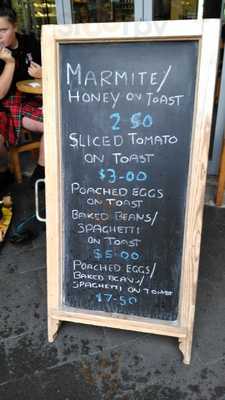 MARMITE/
HONEY ON TOAST
2-50
SLICED TOMATO
ON TOAST
$3-00
POACHED EGGS
ON TOAST
BAKED BEANS/
SPAGHETTI
ON TOAST
$5-00
POACHED EGGS/
BAKED BEANS/
SPAGHETTI ON TOAST
$7-50